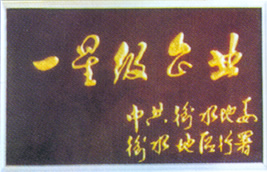 一星级企业
中共衡水地委
衡水地区行署